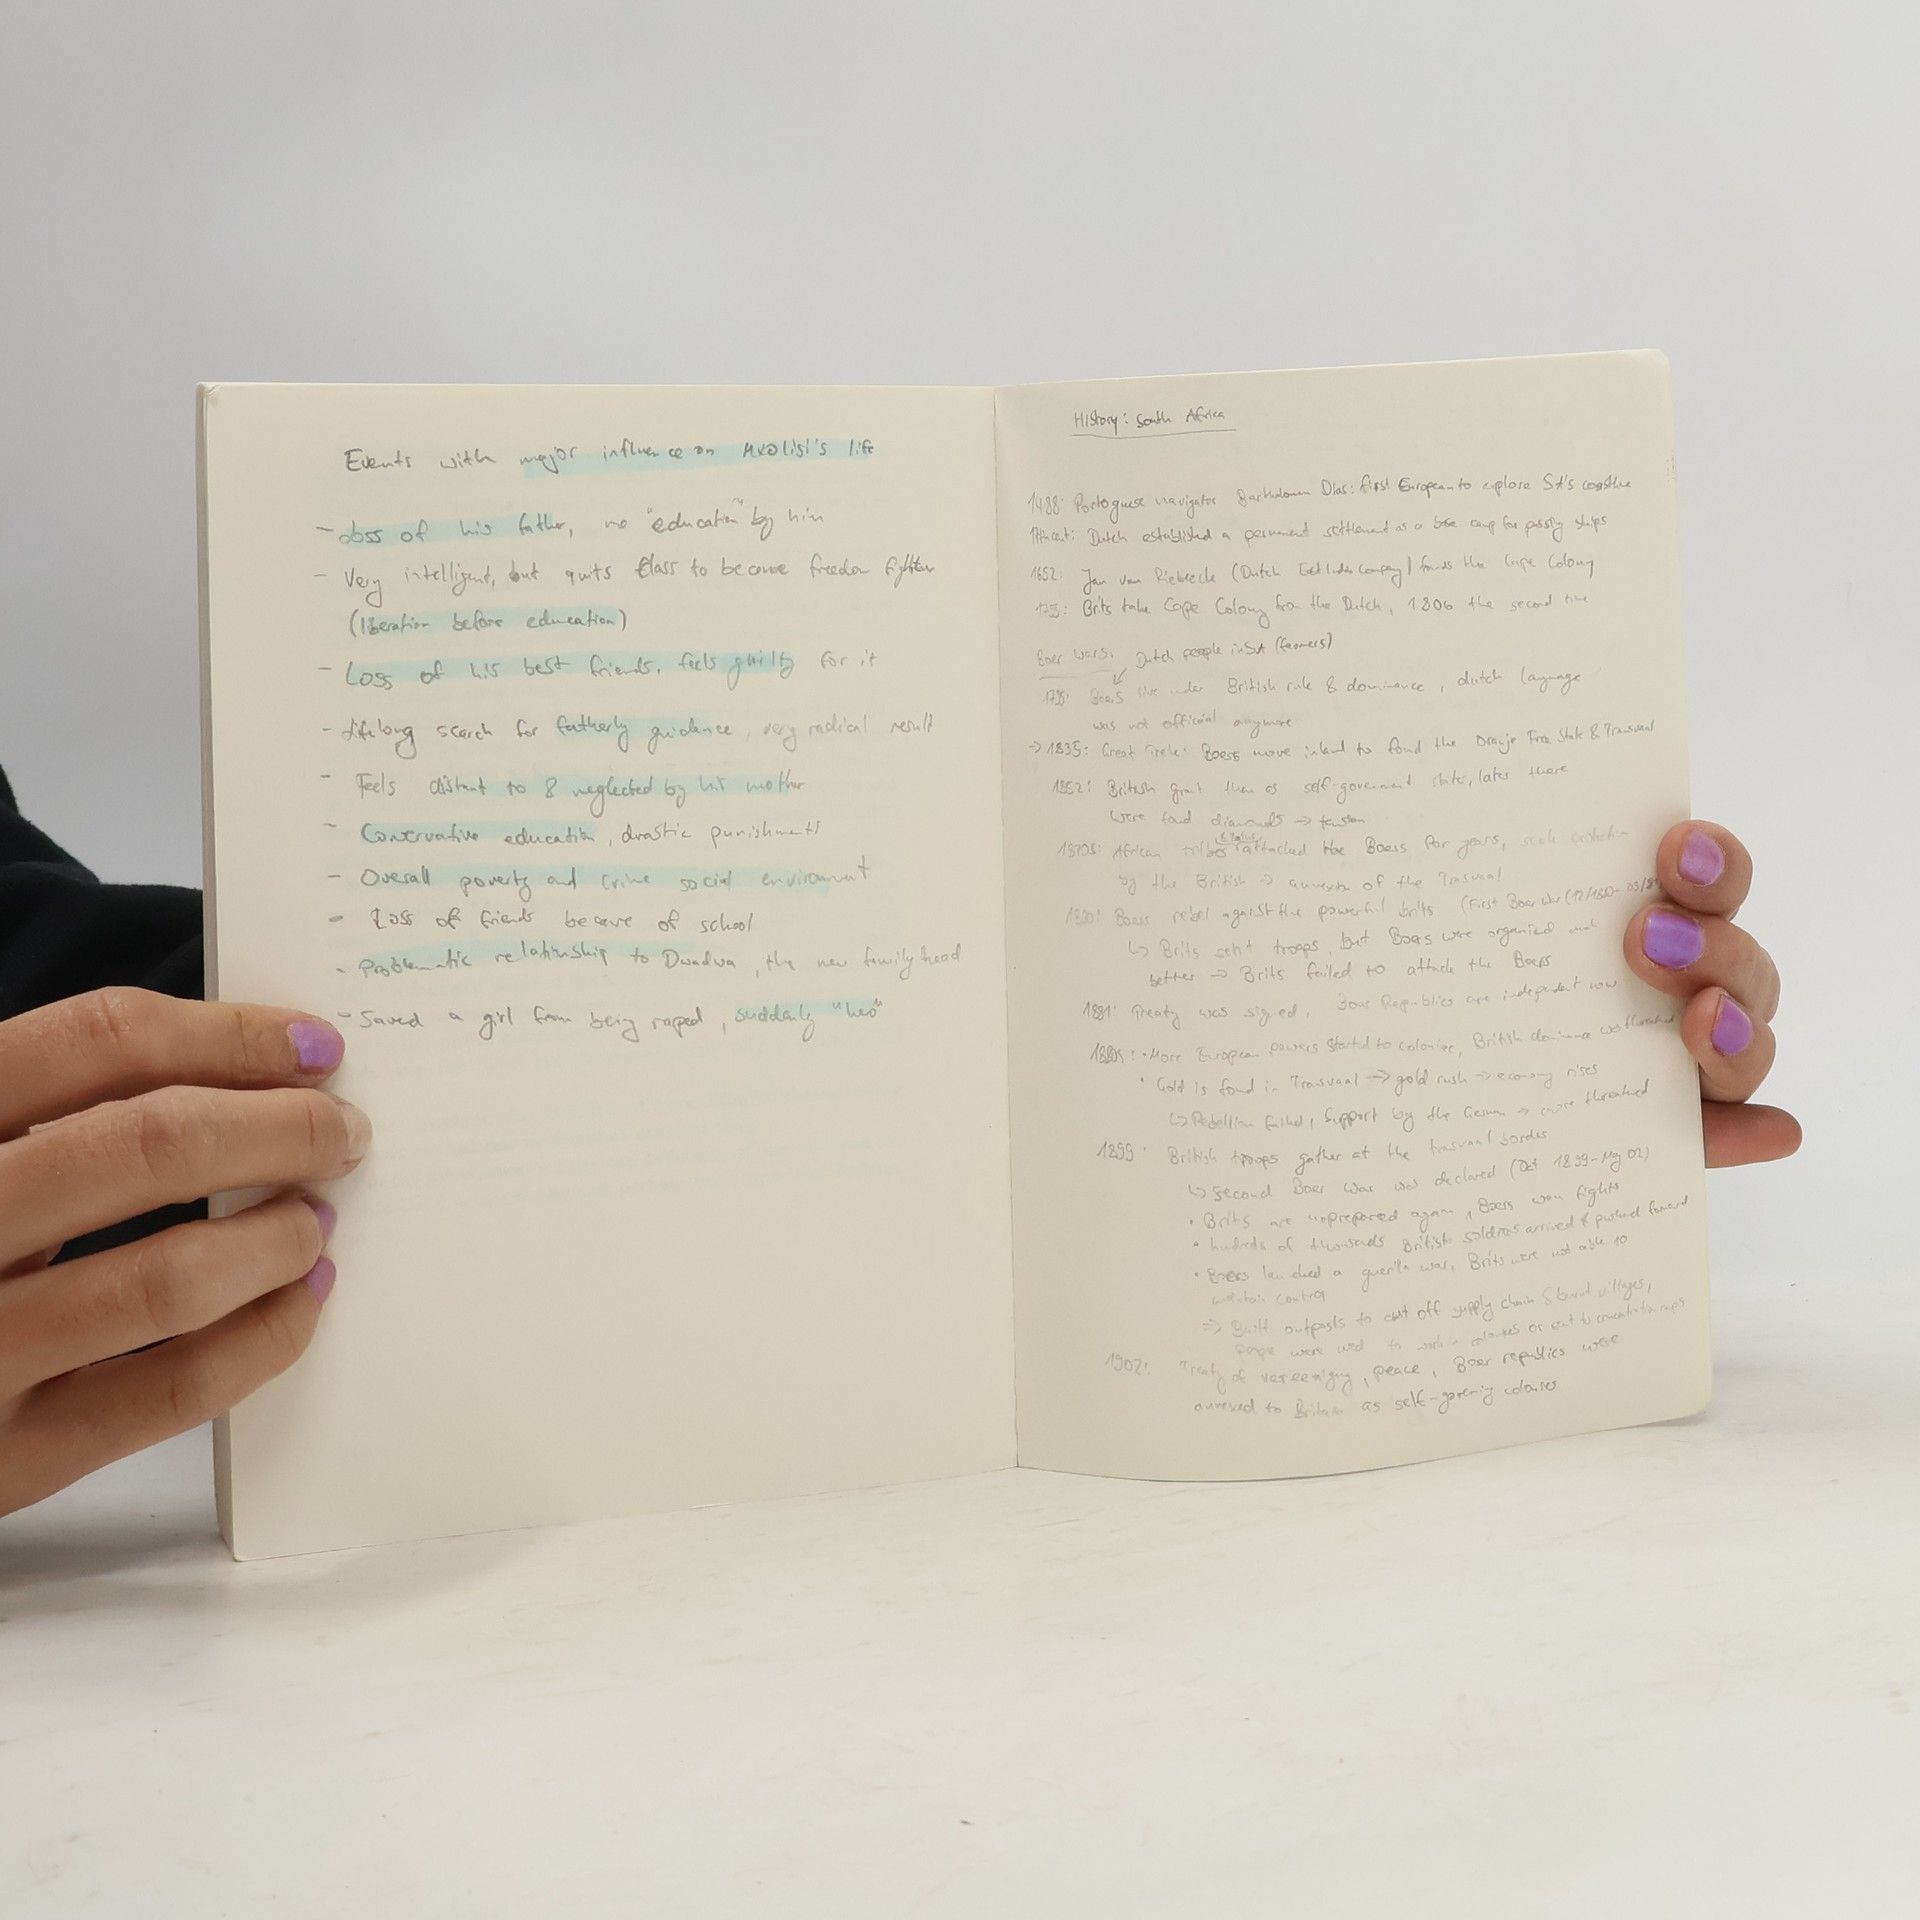 Events with major influence on Mxolisi's life
- Loss of his father, no "education" by him
- Very intelligent, but quits class to become freedom fighter
(liberation before education)
- Loss of his best friends, feels guilty for it
- Lifelong search for fatherly guidance, very radical result
- Feels distant to & neglected by his mother
- Conservative education, drastic punishments
- Overall poverty and crime social environment
- Loss of friends because of school
- Problematic relationship to Dwadwa, the new family head
- Saved a girl from being raped, suddenly "hero"
History: South Africa
1488: Portoguese navigator Bartholomeu Dias: first European to explore SA's coastline
17th cent: Dutch established a permanent settlement as a base camp for passing ships
1652: Jan van Riebeeck (Dutch East India Company) founds the Cape Colony
1795: Brits take Cape Colony from the Dutch, 1806 the second time
Boer Wars: Dutch people in (farmers)
1795: Boers live under British rule & dominance, dutch language
was not official anymore
-> 1835: Great Trek: Boers move inland to found the Oranje Free State & Transvaal
1852: British grant them as self-government state, later there
were found diamonds -> tension
1870s: African tribes attacked the Boers for years, seek protection
by the British -> annexion of the Transvaal
1880: Boers rebel against the powerful brits (First Boer War (12/1880-03/81
↳ Brits sent troops, but Boers were organized much
better -> Brits failed to attack the Boers
1881: Treaty was signed, Boer Republics are independent now
• More European powers started to colonize, British dominance was threatened
• Gold is found in Transvaal -> gold rush -> economy rises
↳ Rebellion failed, support by the German -> more threatened
1899: British troops gather at the transvaal border
↳ second Boer War was declared (Oct 1899-May 02)
• Brits are unprepared again, Boers won fights
• hundreds of thousands British soldiers arrived & pushed forward
• Boers launched a guerilla war, Brits were not able to
maintain control
=> Built outposts to cut off supply chain & burnt villages,
people were used to work in colonies or sent to concentration camps
1902: Treaty of Vereeniging, peace, Boer republics were
annexed to Britain as self-governing colonies